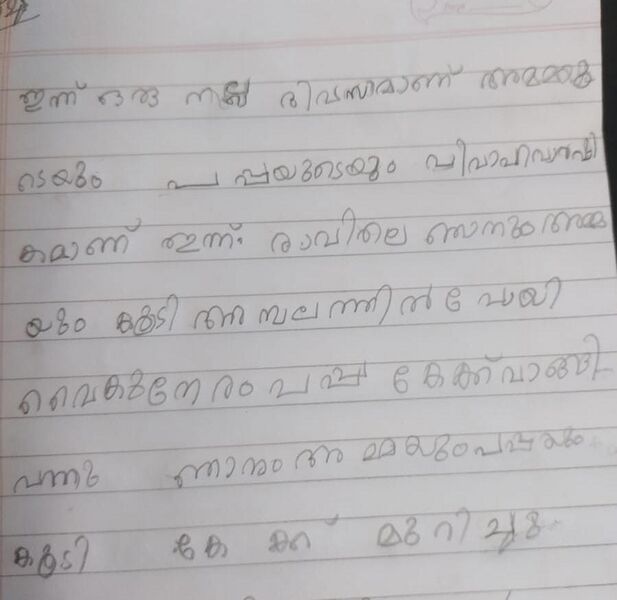 ഇന്ന് ഒരു നല്ല ദിവസമാണ് അമ്മയു
ടെയും പപ്പയുടെയും വിവാഹവാർഷി
കമാണ് ഇന്ന്. രാവിലെ ഞാനും അമ്മ
യും കൂടി അമ്പലത്തിൽ പോയി
വൈകുന്നേരം പപ്പ കേക്ക് വാങ്ങി
വന്നു ഞാനും അമ്മയും പപ്പയും
കൂടി കേക്ക് മുറിച്ചു.